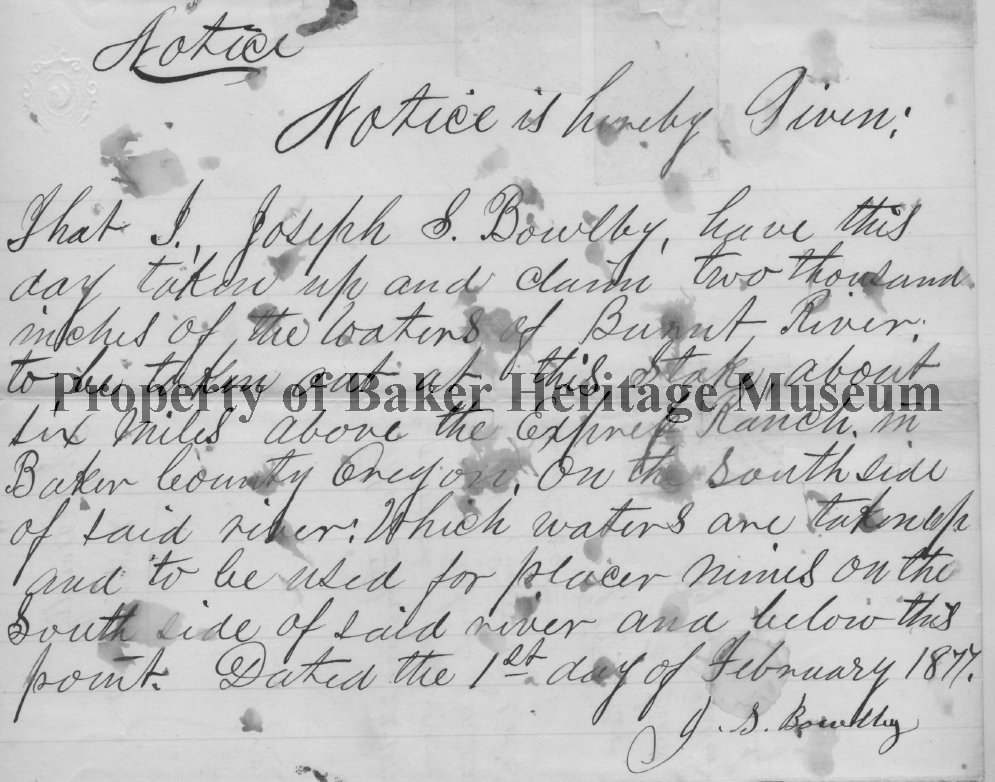 Notice
Notice is hereby Given;
That I., Joseph S. Bowlby, have this
day taken up and claim two thousand
inches of the waters of Burnt River.
to be taken out at this Stake, about
Property of Baker Heritage Museum
six miles above the Express Ranch, in
Baker County Oregon, On the South side
of said river: Which waters are taken up
and to be used for placer mines on the
South side of said river and below this
point. Dated the 1st day of February 1877.
J. S. Bowlby